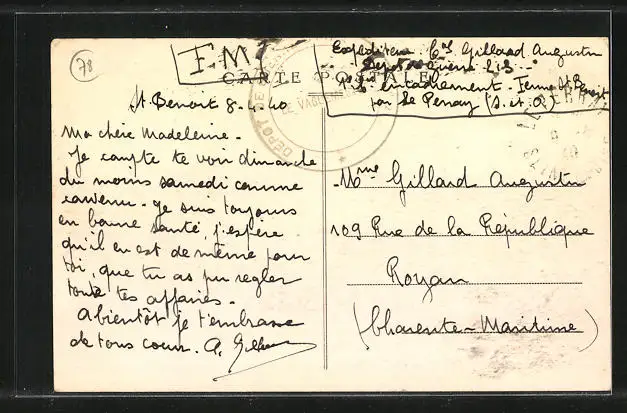 78
F.M.
CARTE POSTALE
Expéditeur Cal Gillard Augustin
Dépôt de Guerre 213
encadrement - Ferme St Benoit
par Le Perray (S. et O.)
DÉPÔT DE
St Benoit 8-4-40
Ma chère Madeleine.
Je compte te voir dimanche
du moins samedi comme
convenu. Je suis toujours
en bonne santé, j'espère
qu'il en est de même pour
toi, que tu as pu regler
toute tes affaires.
A bientôt je t'embrasse
de tous coeur. A. Gillard
Mme Gillard Augustin
109 Rue de la République
Royan
(Charente-Maritime)